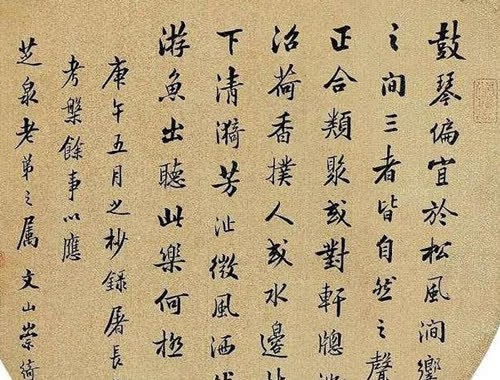 鼓琴偏宜於松風澗響
之間三者皆自然之聲
正合類聚或對軒牕池
沼荷香撲人或水邊
下清漪芳沚微風洒
游魚出聽此樂何極
庚午五月之杪錄屠長
考槃餘事以應
芝泉老弟之属文山崇綺